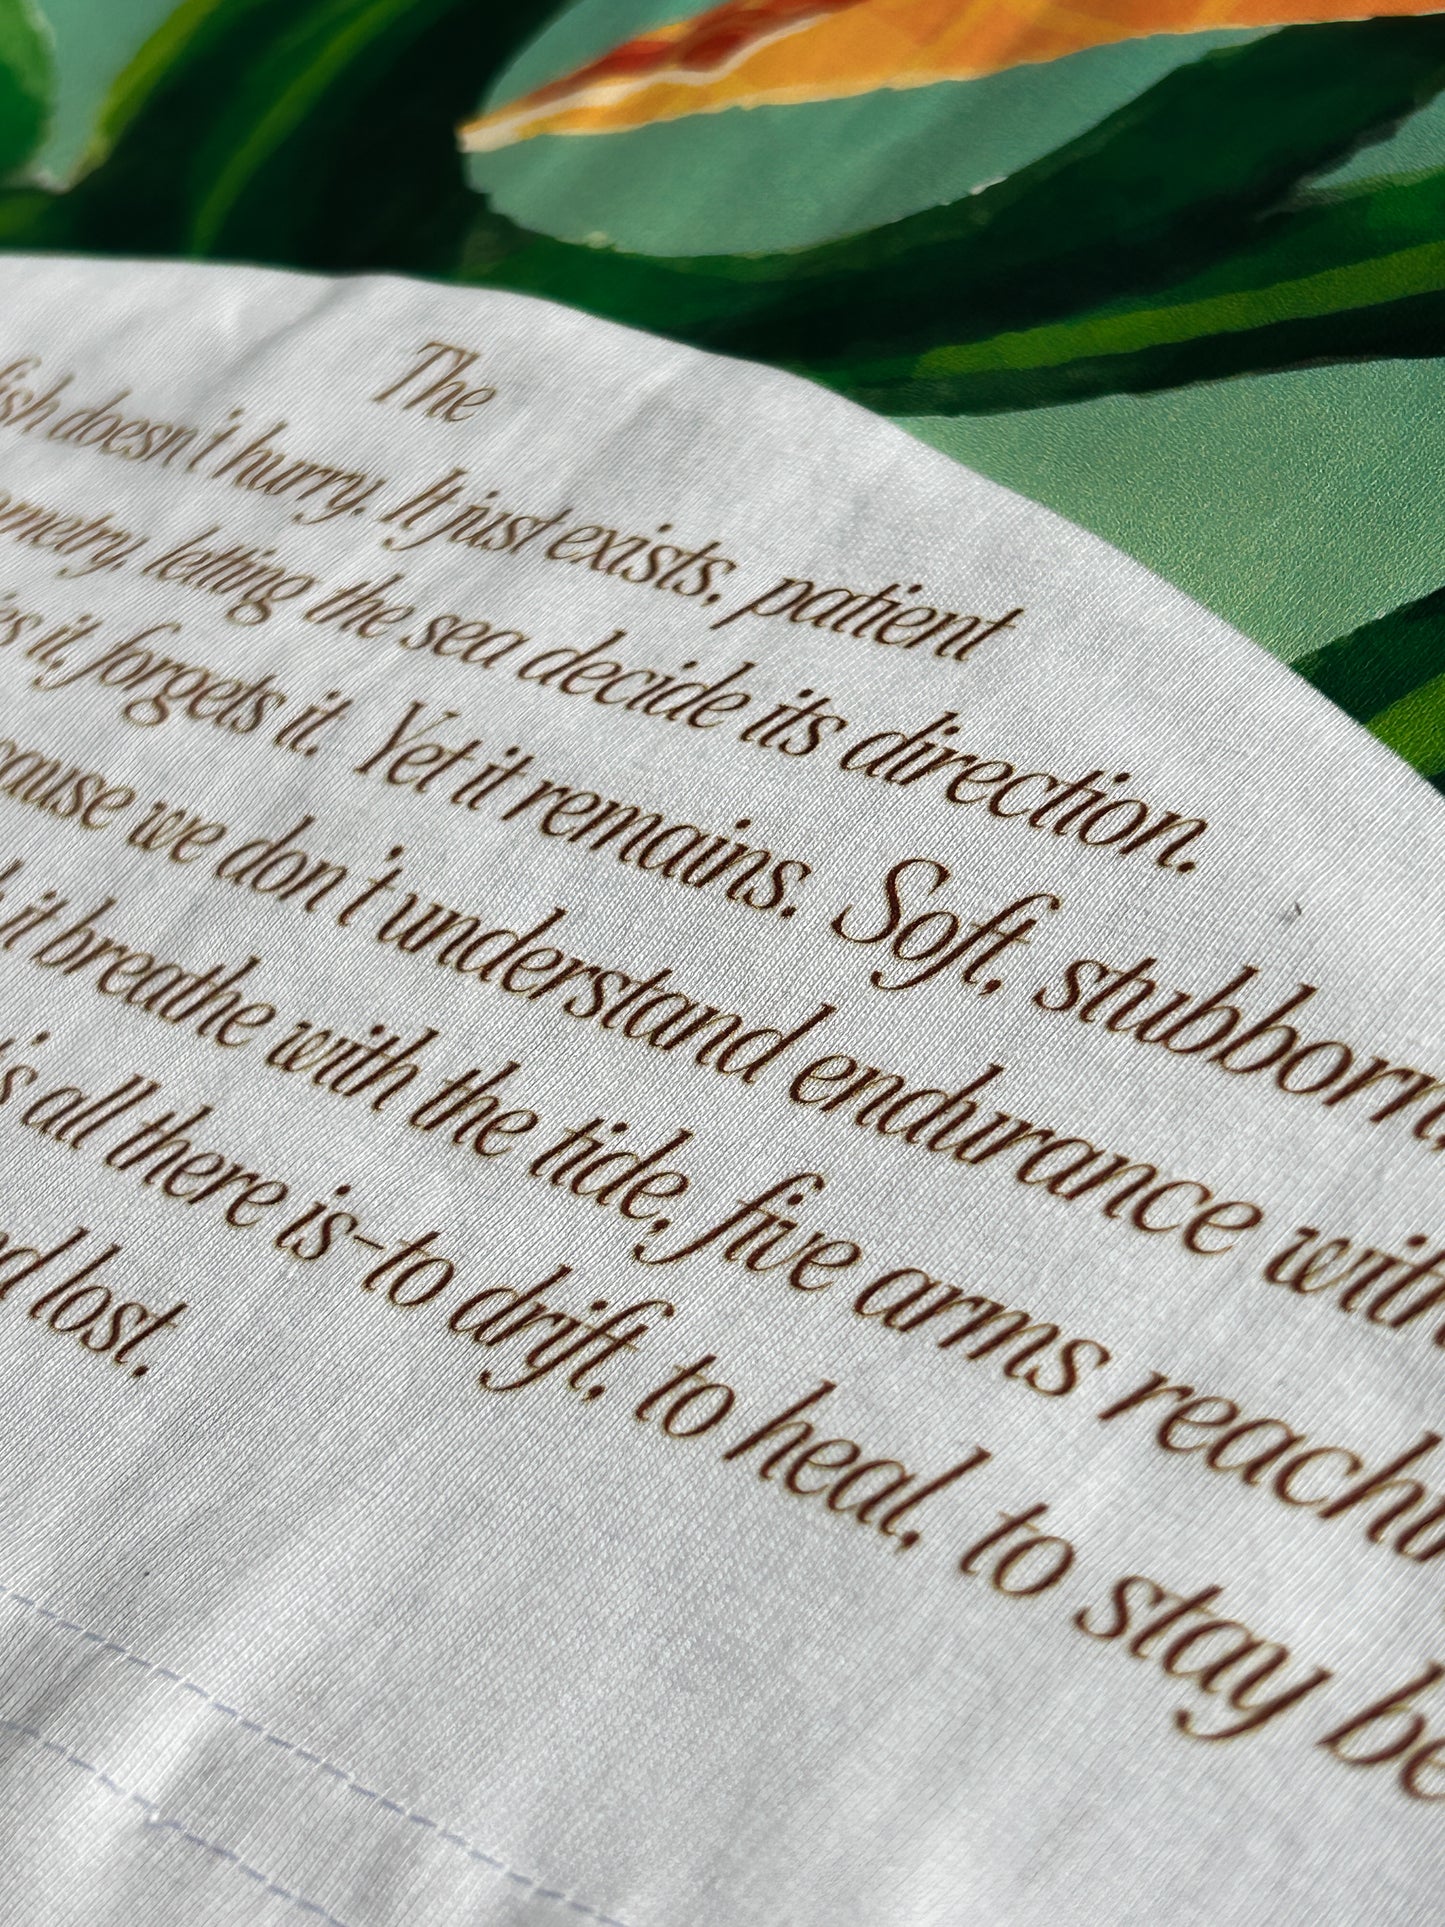 The
fish doesn't hurry. It just exists, patient
letting the sea decide its direction.
it, forgets it. Yet it remains. Soft, stubborn,
we don't understand endurance
it breathe with the tide, five arms
all there is-to drift, to heal, to stay
lost,